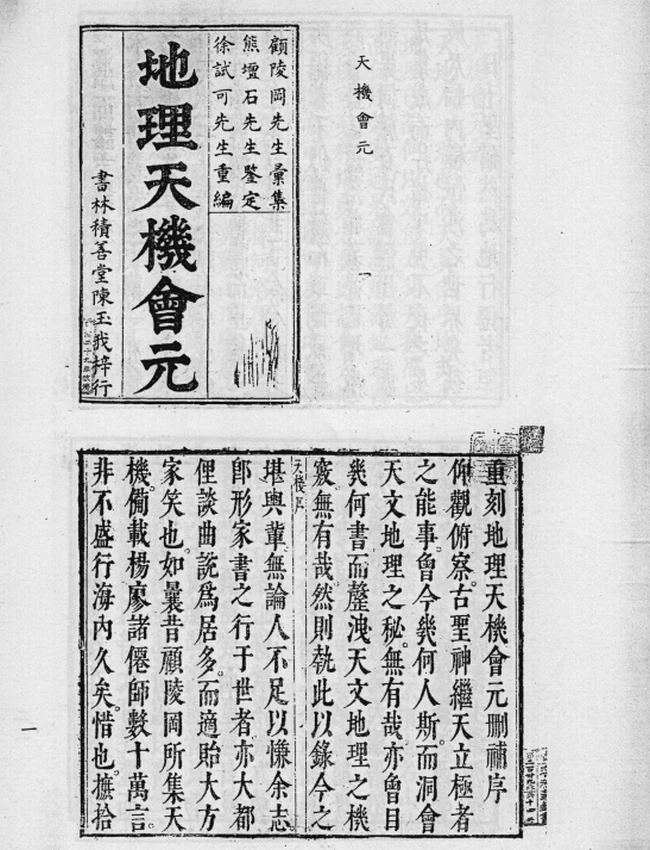 天機會元
一
顧陵岡先生彙集
熊壇石先生鑒定
徐試可先生重編
地理天機會元
書林積善堂陳玉我梓行
重刻地理天機會元刪補序
仰觀俯察。古聖神繼天立極者
之能事。會今幾何人斯。而洞會
天文地理之秘。無有哉。亦會目
幾何書而釐洩天文地理之機
竅無有哉。然則執此以錄今之
天機序
堪輿輩無論人不足以慊余志。
卽形家書之行于世者亦大都
俚談曲說爲居多。而適貽大方
家笑也。如曩昔顧陵岡所集天
機。備載楊廖諸僊師數十萬言。
非不盛行海內久矣。惜也。摭拾
一